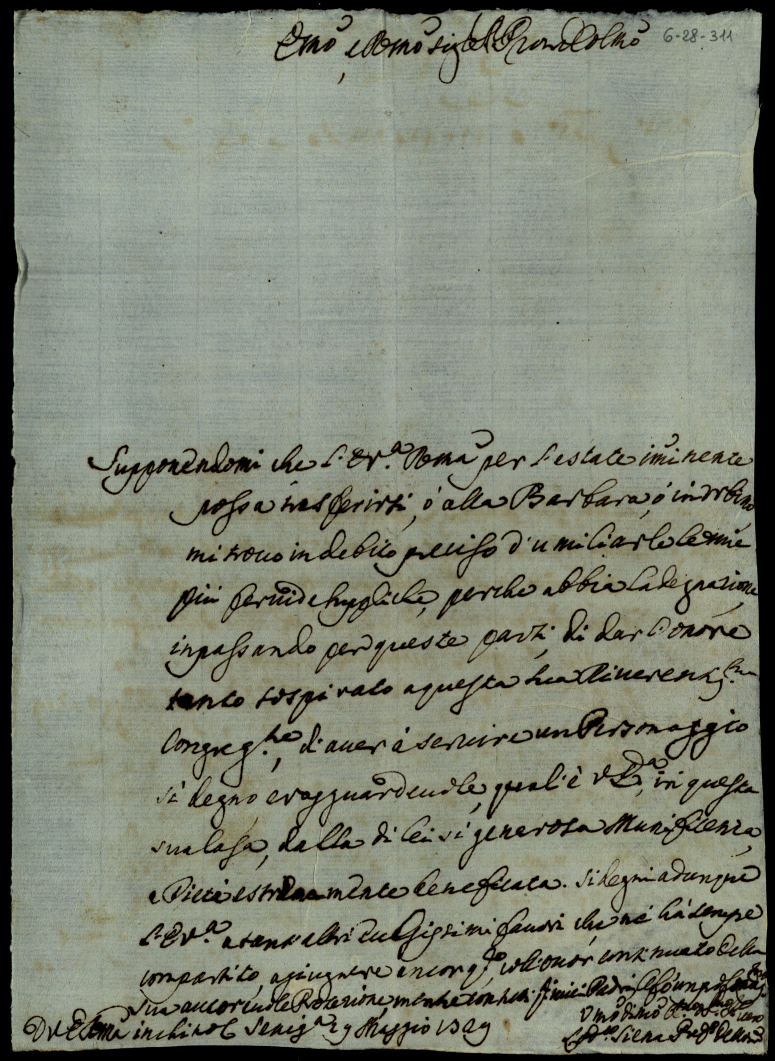 Emo e Rmo Sig.r Pron Colmo 6-28-311
Supponendomi che l'E.V.a Rma per l'estate iminente
possa trasferirsi, ò alla Barbara, ò in Urbino
mi trovo in debito preciso d'umiliarle le mie
più fervide suppliche, perche abbia la degnazione
in passando per queste parti, di dar l'onore
tanto sospirato a questa sua Riverentis.ma
Congreg.ne, di aver à servire un Personaggio
sì degno e ragguardevole, qual'è V. Em.a, in questa
sua Casa, dalla di lei sì generosa Munificenza,
e Pietà estremamente beneficata. Si degni adunque
l'E.V.a a tant'altri favori, che ne hà sempre
compartito, agiugnere ancor q.to coll'onor continuato della
sua autorevole Protezione, mentre con tutti
D.V. Ema Senig.a 29 Maggio 1729
Siena